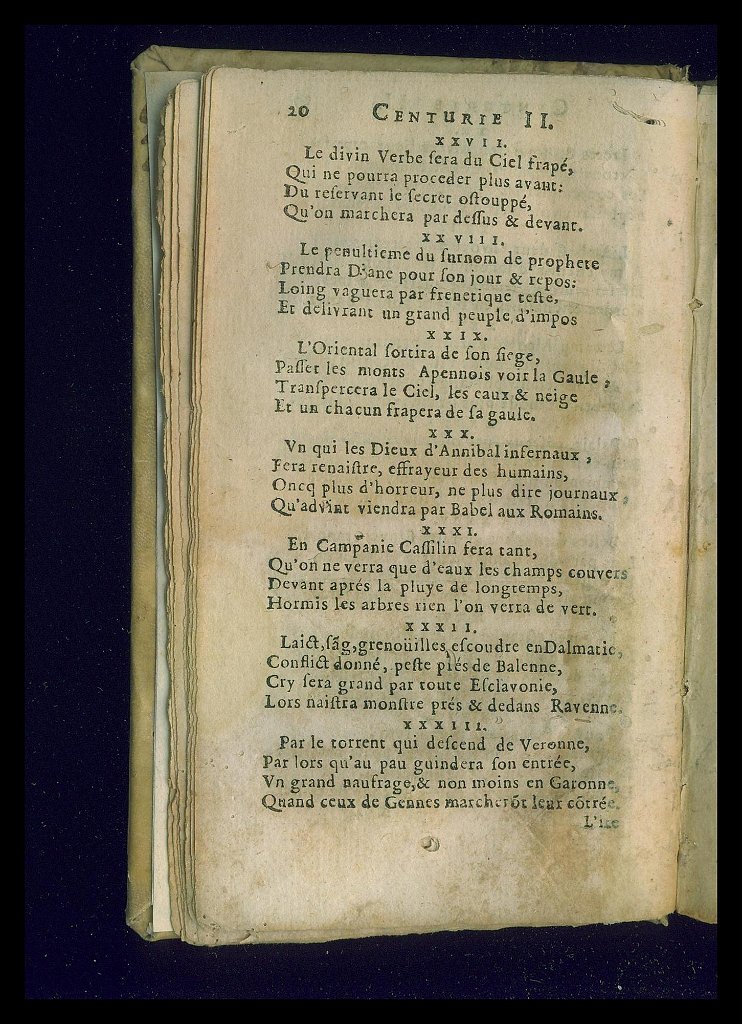 20 CENTURIE II.
XXVII.
Le divin Verbe ſera du Ciel frapé,
Qui ne pourra proceder plus avant:
Du reſervant le ſecret oſtouppé,
Qu'on marchera par deſſus & devant.
XXVIII.
Le penultieme du ſurnom de prophete
Prendra Diane pour ſon jour & repos:
Loing vaguera par frenetique teſte,
Et delivrant un grand peuple d'impos
XXIX.
L'Oriental ſortira de ſon ſiege,
Paſſer les monts Apennois voir la Gaule,
Tranſpercera le Ciel, les eaux & neige
Et un chacun frapera de ſa gaule.
XXX.
Vn qui les Dieux d'Annibal infernaux,
Fera renaiſtre, effrayeur des humains,
Oncq plus d'horreur, ne plus dire journaux,
Qu'advint viendra par Babel aux Romains.
XXXI.
En Campanie Caſſilin fera tant,
Qu'on ne verra que d'eaux les champs couvers
Devant aprés la pluye de longtemps,
Hormis les arbres rien l'on verra de vert.
XXXII.
Laict, ſãg, grenoüilles, eſcoudre en Dalmatie,
Conflict donné, peſte prés de Balenne,
Cry ſera grand par toute Eſclavonie,
Lors naiſtra monſtre prés & dedans Ravenne.
XXXIII.
Par le torrent qui deſcend de Veronne,
Par lors qu'au pau guindera ſon entrée,
Vn grand naufrage, & non moins en Garonne,
Quand ceux de Gennes marcherõt leur cõtrée.
L'ire